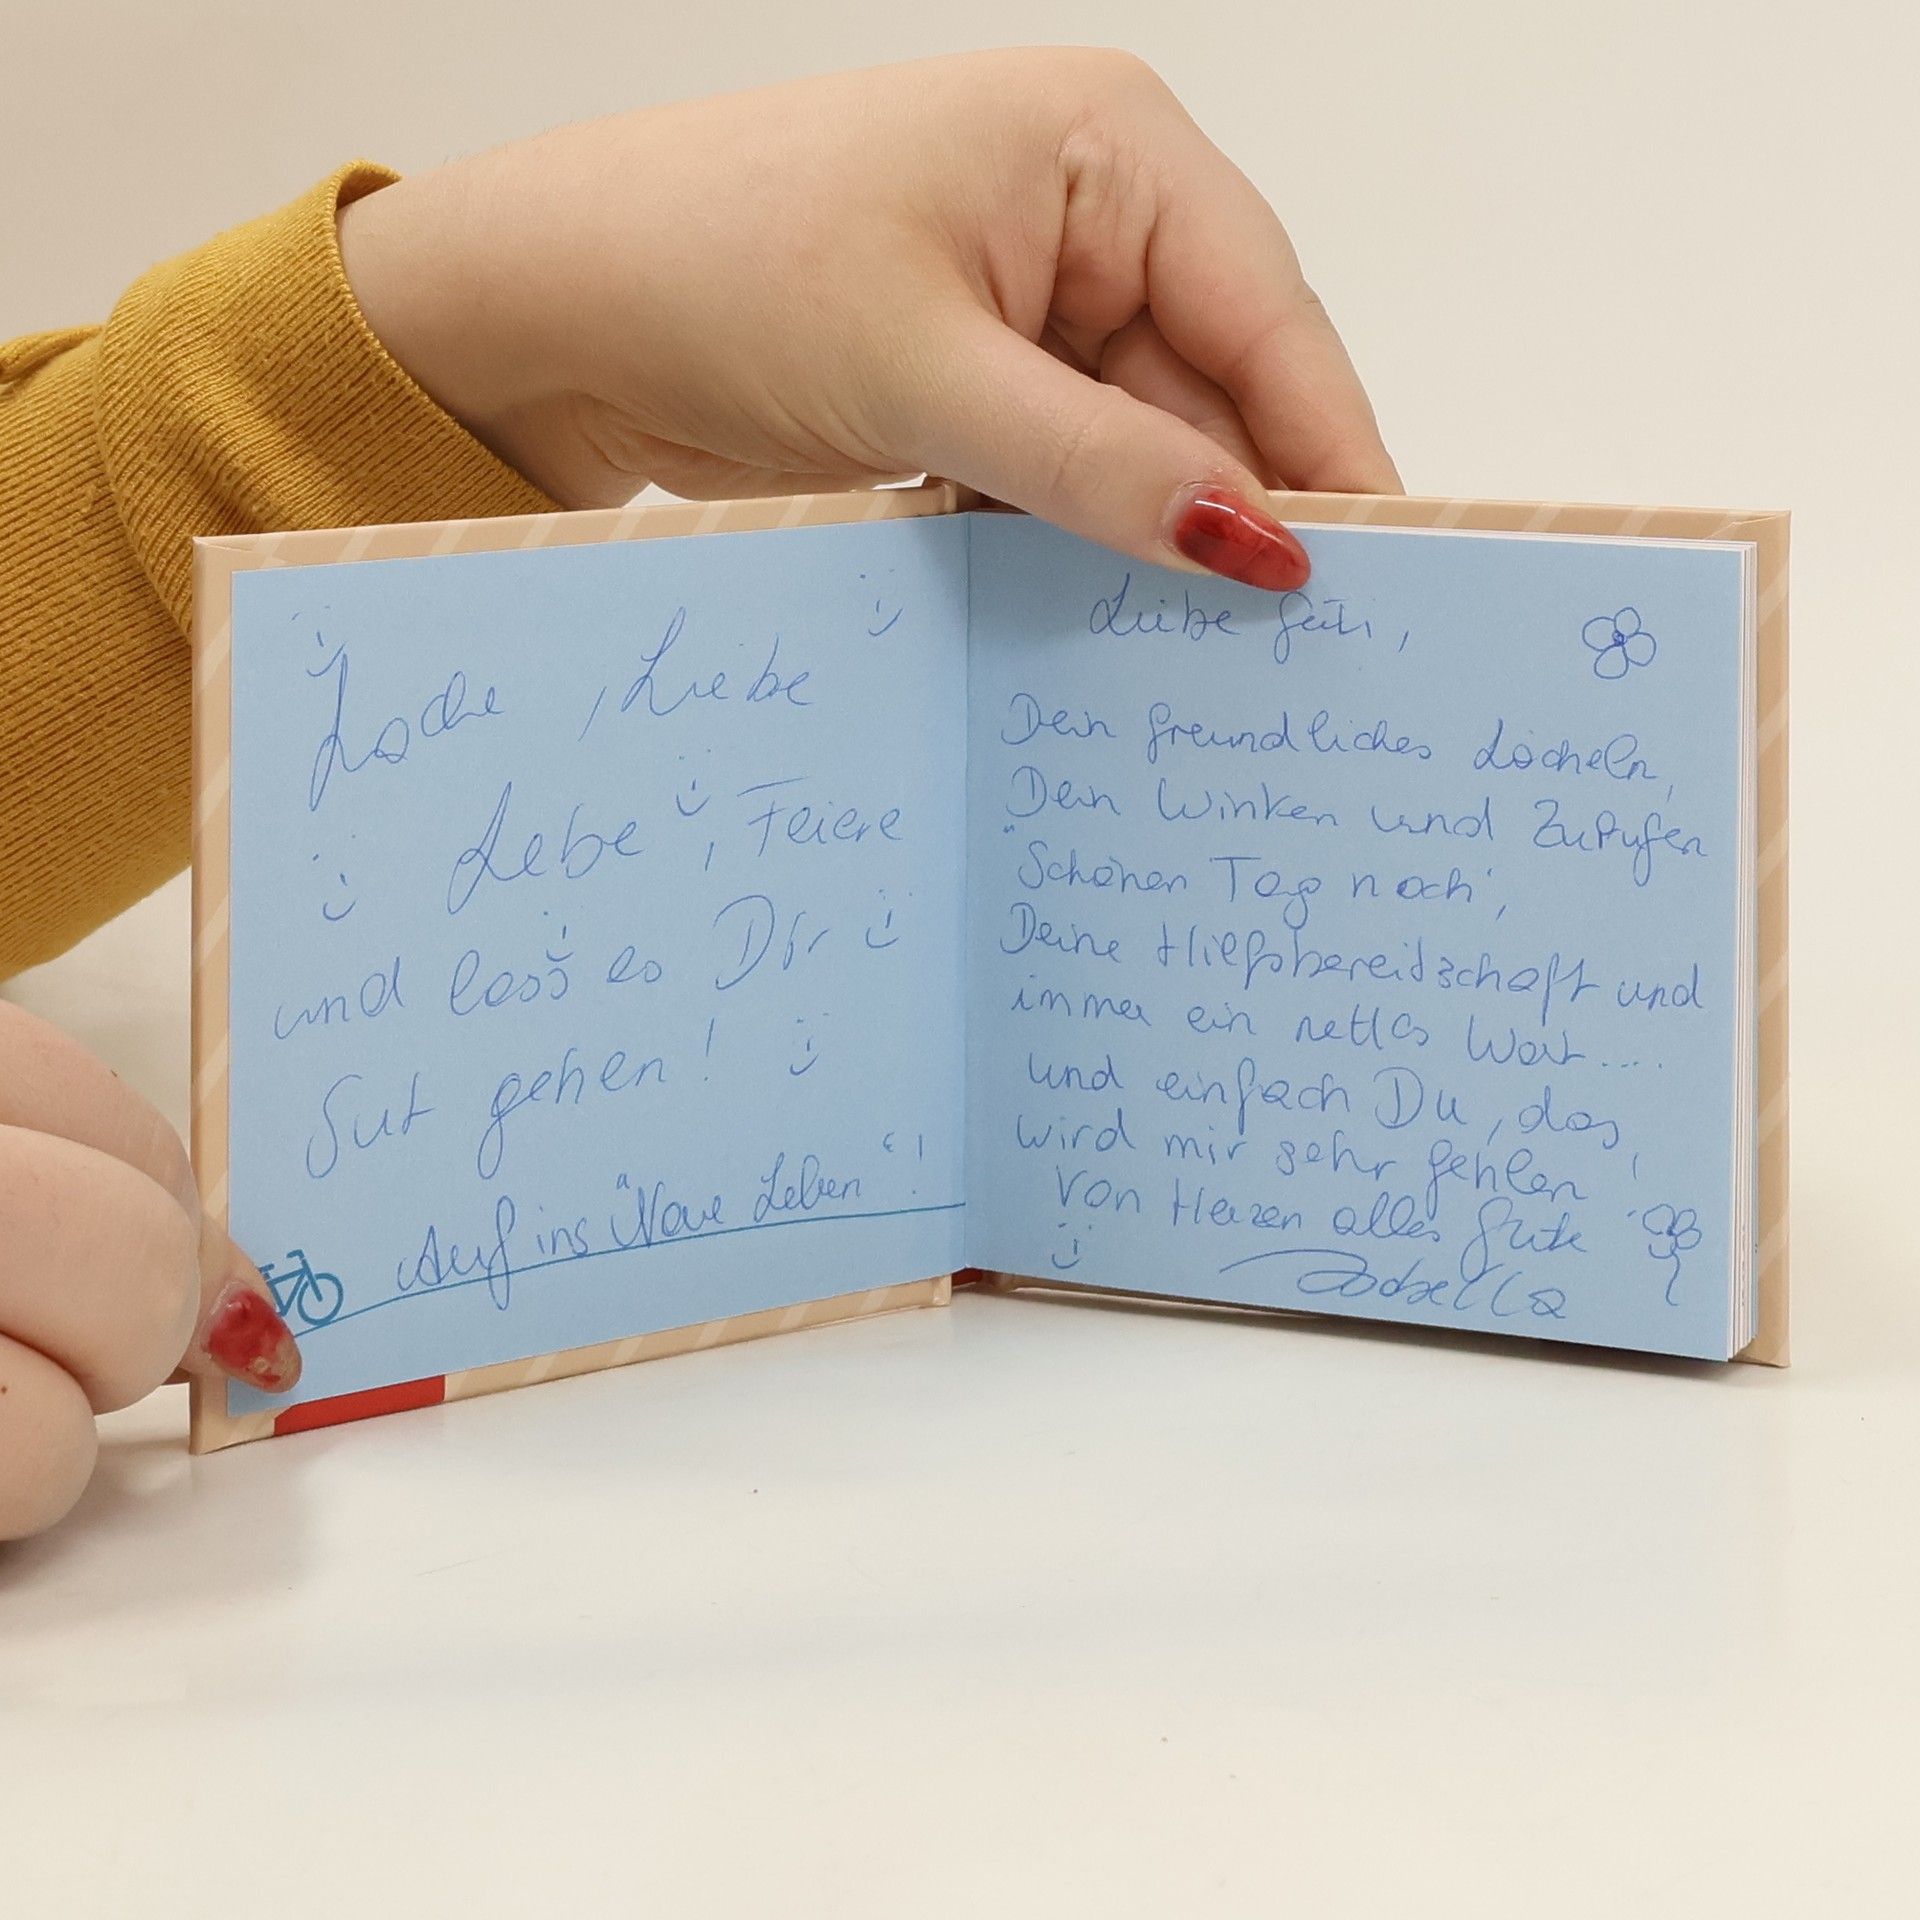 Lache, Liebe
Lebe, Feiere
und lass es Dir
Gut gehen!
Auf ins "Neue Leben"!
Liebe Guti,
Dein freundliches Lächeln,
Dein Winken und Zurufen
"Schönen Tag noch",
Deine Hilfsbereitschaft und
immer ein nettes Wort....
und einfach Du, das
wird mir sehr fehlen!
Von Herzen alles Gute